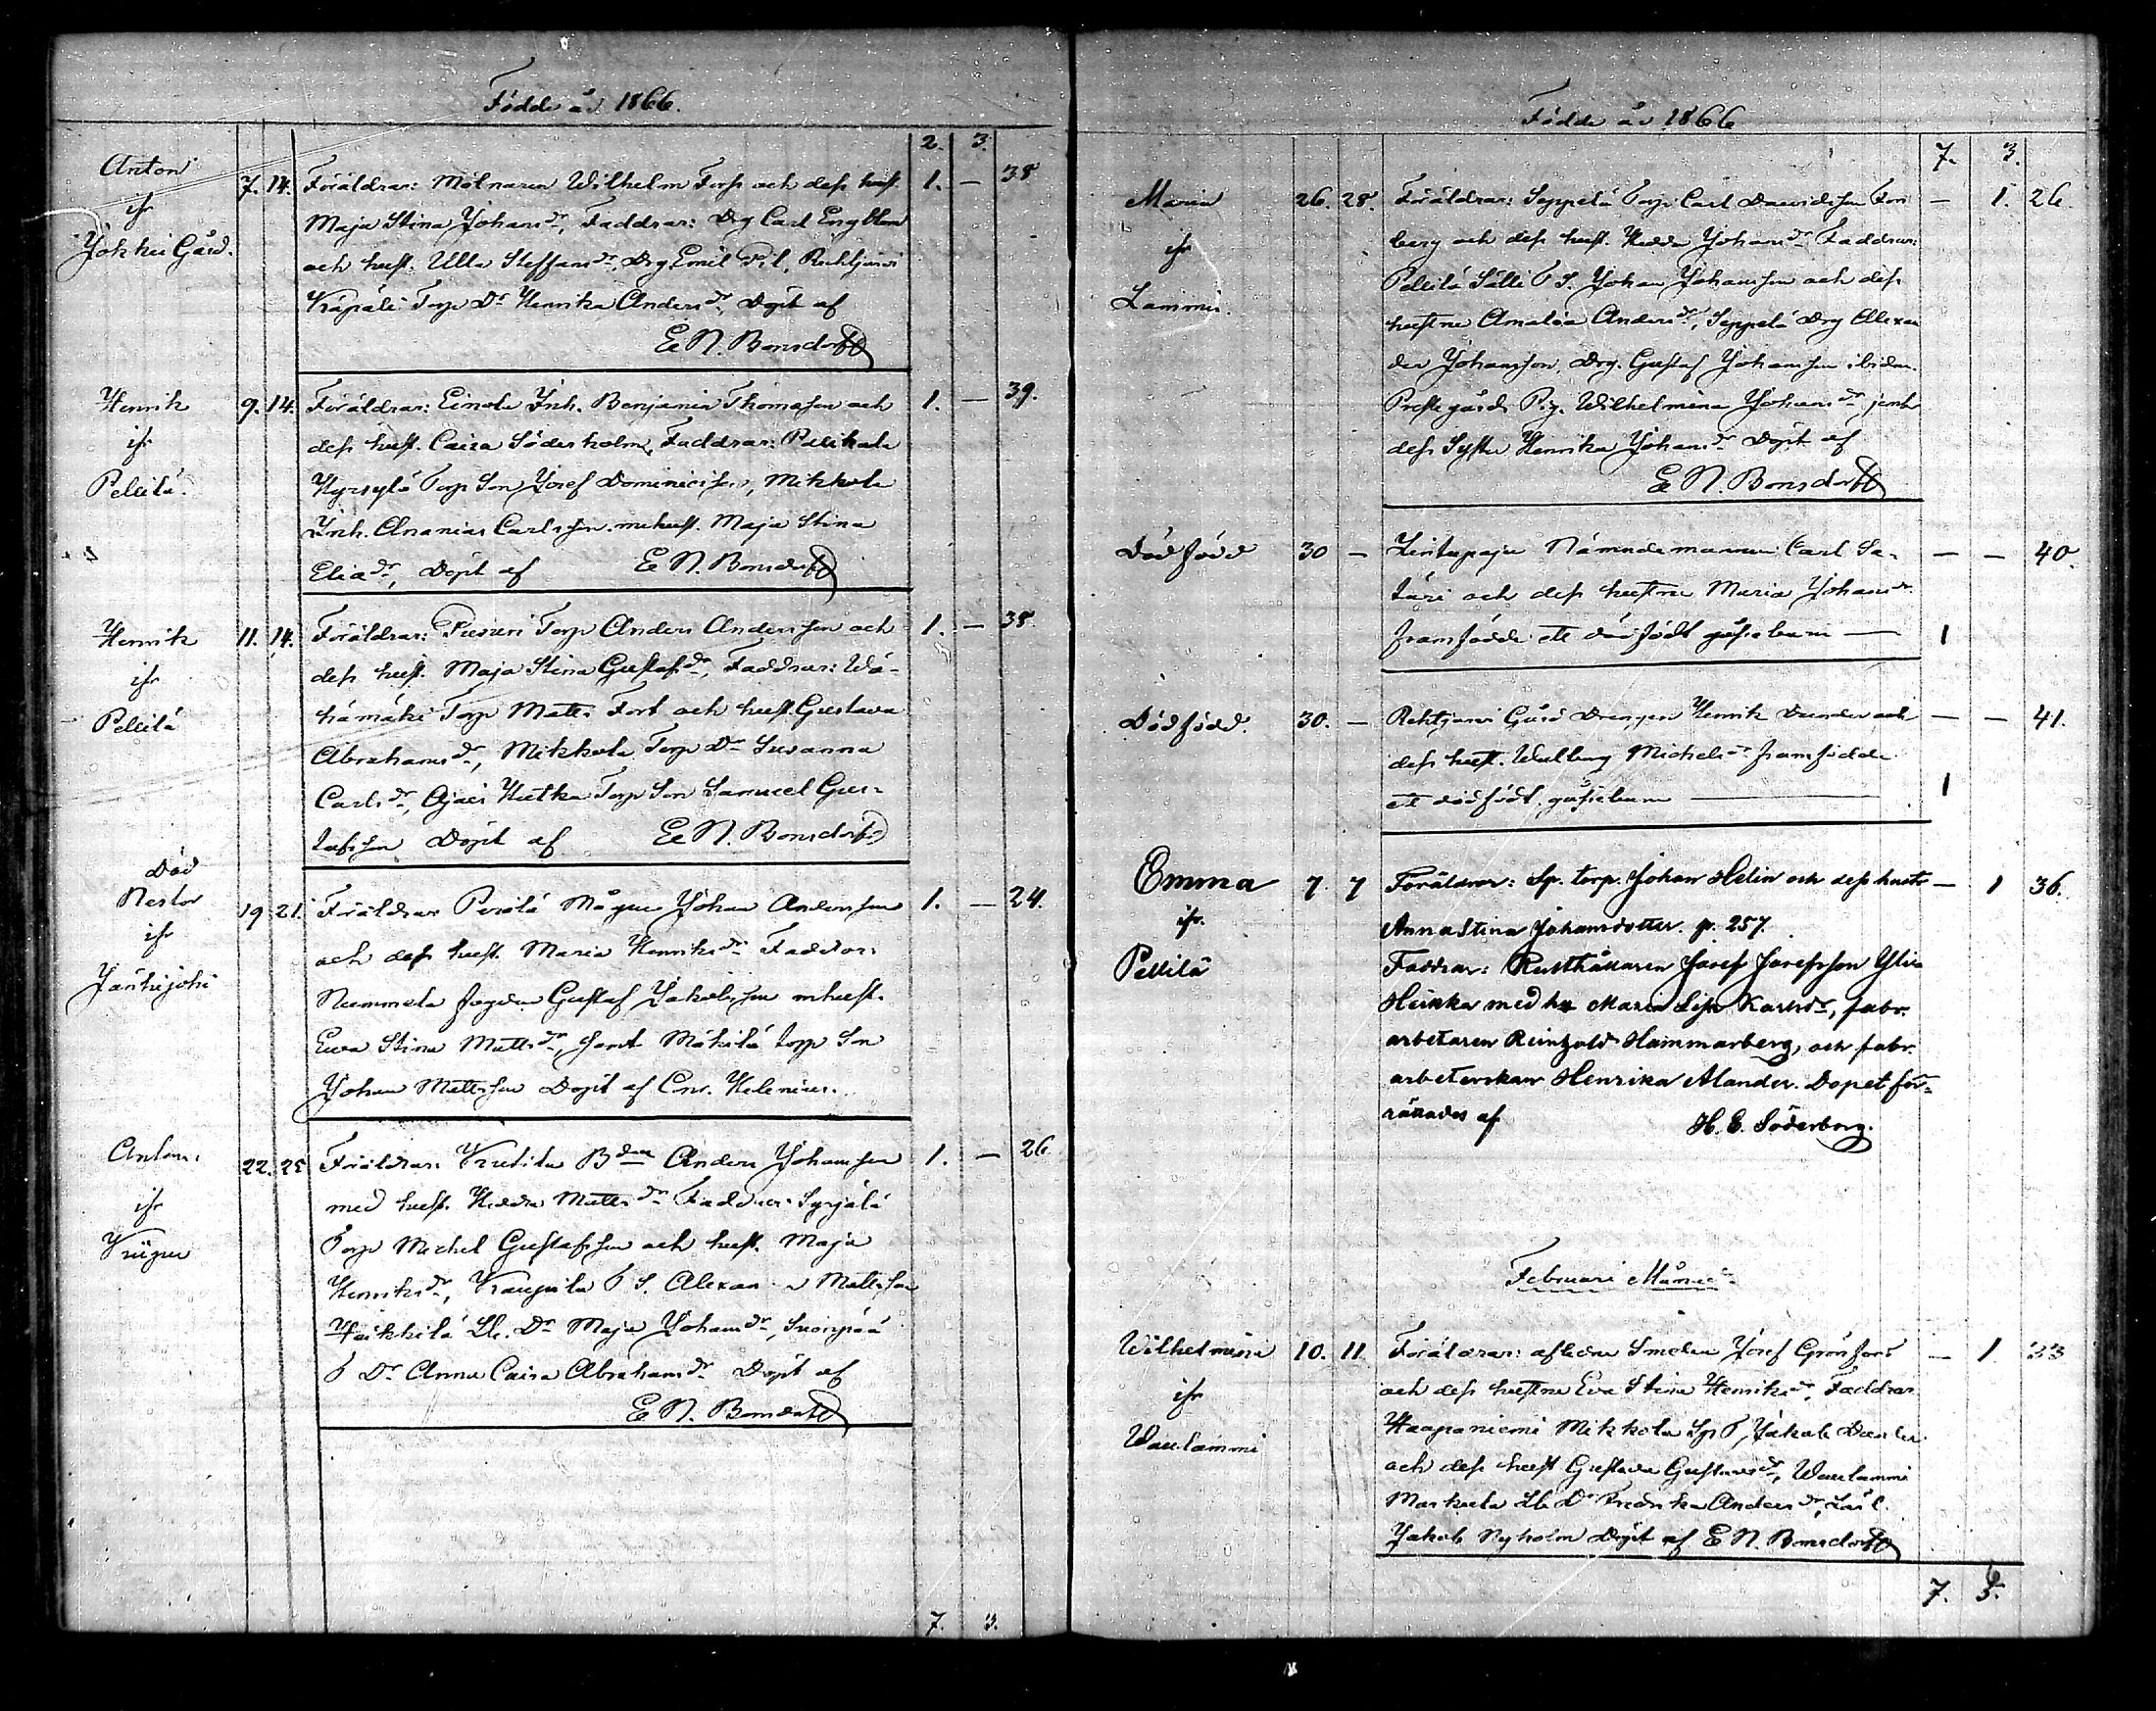 Födde år 1866.
2. 3.
Anton
ifr
Jokkis Gård.
7. 14. Föräldrar: Mölnaren Wilhelm Forss och dess hust. 1. — 38
Maja Stina Johansdr, Faddrar: Drg Carl Engblom
och hust. Ulla Steffansdr, Drg Emil
Torp Dr Henrika Andersdr, Döpt af
E N. Bonsdorff
Henrik
ifr
Pellilä.
9. 14. Föräldrar: Einola Inh. Benjamin Thomasson och 1. — 39.
dess hust. Caisa Söderholm, Faddrar:
Torp Son Josef Dominicisson, Mikkola
Inh. Ananias Carlsson m hust. Maja Stina
Eliadr, Döpt af E N. Bonsdorff
Henrik
ifr
Pellilä
11. 14. Föräldrar: Torp Anders Andersson och 1. — 38
dess hust. Maja Stina Gustafsdr, Faddrar: Wä-
hämäki Torp Matts Fort och hust. Gustava
Abrahamsdr, Mikkola Torp Dr Susanna
Carlsdr, Torp Son Samuel Gus-
tafsson Döpt af E N. Bonsdorff
Död
Nestor
ifr
19. 21. Föräldrar Perälä Mågen Johan Andersson 1. — 24.
och dess hust. Maria Henriksdr Faddrar:
Nummela fogden Gustaf Jakobsson m hust.
Eva Stina Mattsdr, samt Mäkilä torp Son
Johan Mattsson Döpt af Cnr. Helenius.
Anton.
ifr
22. 25 Föräldrar: Bden Anders Johansson 1. — 26.
med hust. Hedda Mattsdr Faddrar: Syrjälä
Torp Michel Gustafsson och hust. Maja
Henriksdr, Kaupila T S. Mattsson
Heikkilä Dr Maja Johansdr,
T Dr Anna Caisa Abrahamsdr Döpt af
E N. Bonsdorff
7. 3.
Födde år 1866
7. 3.
Maria
ifr
Lammi.
26. 28. Föräldrar: Seppälä Torp Carl Davidsson Fors — 1. 26.
berg och dess hust. Hedda Johansdr Faddrar:
Pellilä Sälli T S. Johan Johansson och dess
hustru Amalia Andersdr, Seppälä Drg Alexan
der Johansson, Drg. Gustaf Johansson ibidem.
Prestegårds Pig. Wilhelmina Johansdr jemte
dess Syster Henrika Johansdr Döpt af
E N. Bonsdorff
Dödfödd 30 — Nämndemannen Carl Sa- — — 40.
käri och dess hustru Maria Johansdr
framfödde ett dödfödt gossebarn — 1
Dödfödd. 30. — Gård Drengen Henrik Dunder och — — 41.
dess hust. Walborg Michelsdr framfödde
ett dödfödt gossebarn — 1
Emma
ifr.
Pellilä
7. 7 Föräldrar: Sp. torp. Johan Helin och dess hustr — 1 36.
Anna Stina Johansdotter. p. 257.
Faddrar: Rusthållaren Josef Josefsson Yli-
Heikka med hu Maria Lisa Karlsdr, fabr.
arbetaren Reinhold Hammarberg, och fabr.
arbeterskan Henrika Alander. Dopet för-
rättades af H. E. Söderborg.
Februari Månad
Wilhelmina
ifr
Waulammi
10. 11. Föräldrar: aflidne Smeden Josef Grönfors — 1. 33
och dess hustru Eva Stina Henriksdr, Faddrar
Haapaniemi Mikkola Sp T, Jakob Dunder
och dess hust Gustava Gustavsdr, Waulammi
Markula Dr Fredrika Andersdr,
Jakob Nyholm Döpt af E N. Bonsdorff
7. 5.